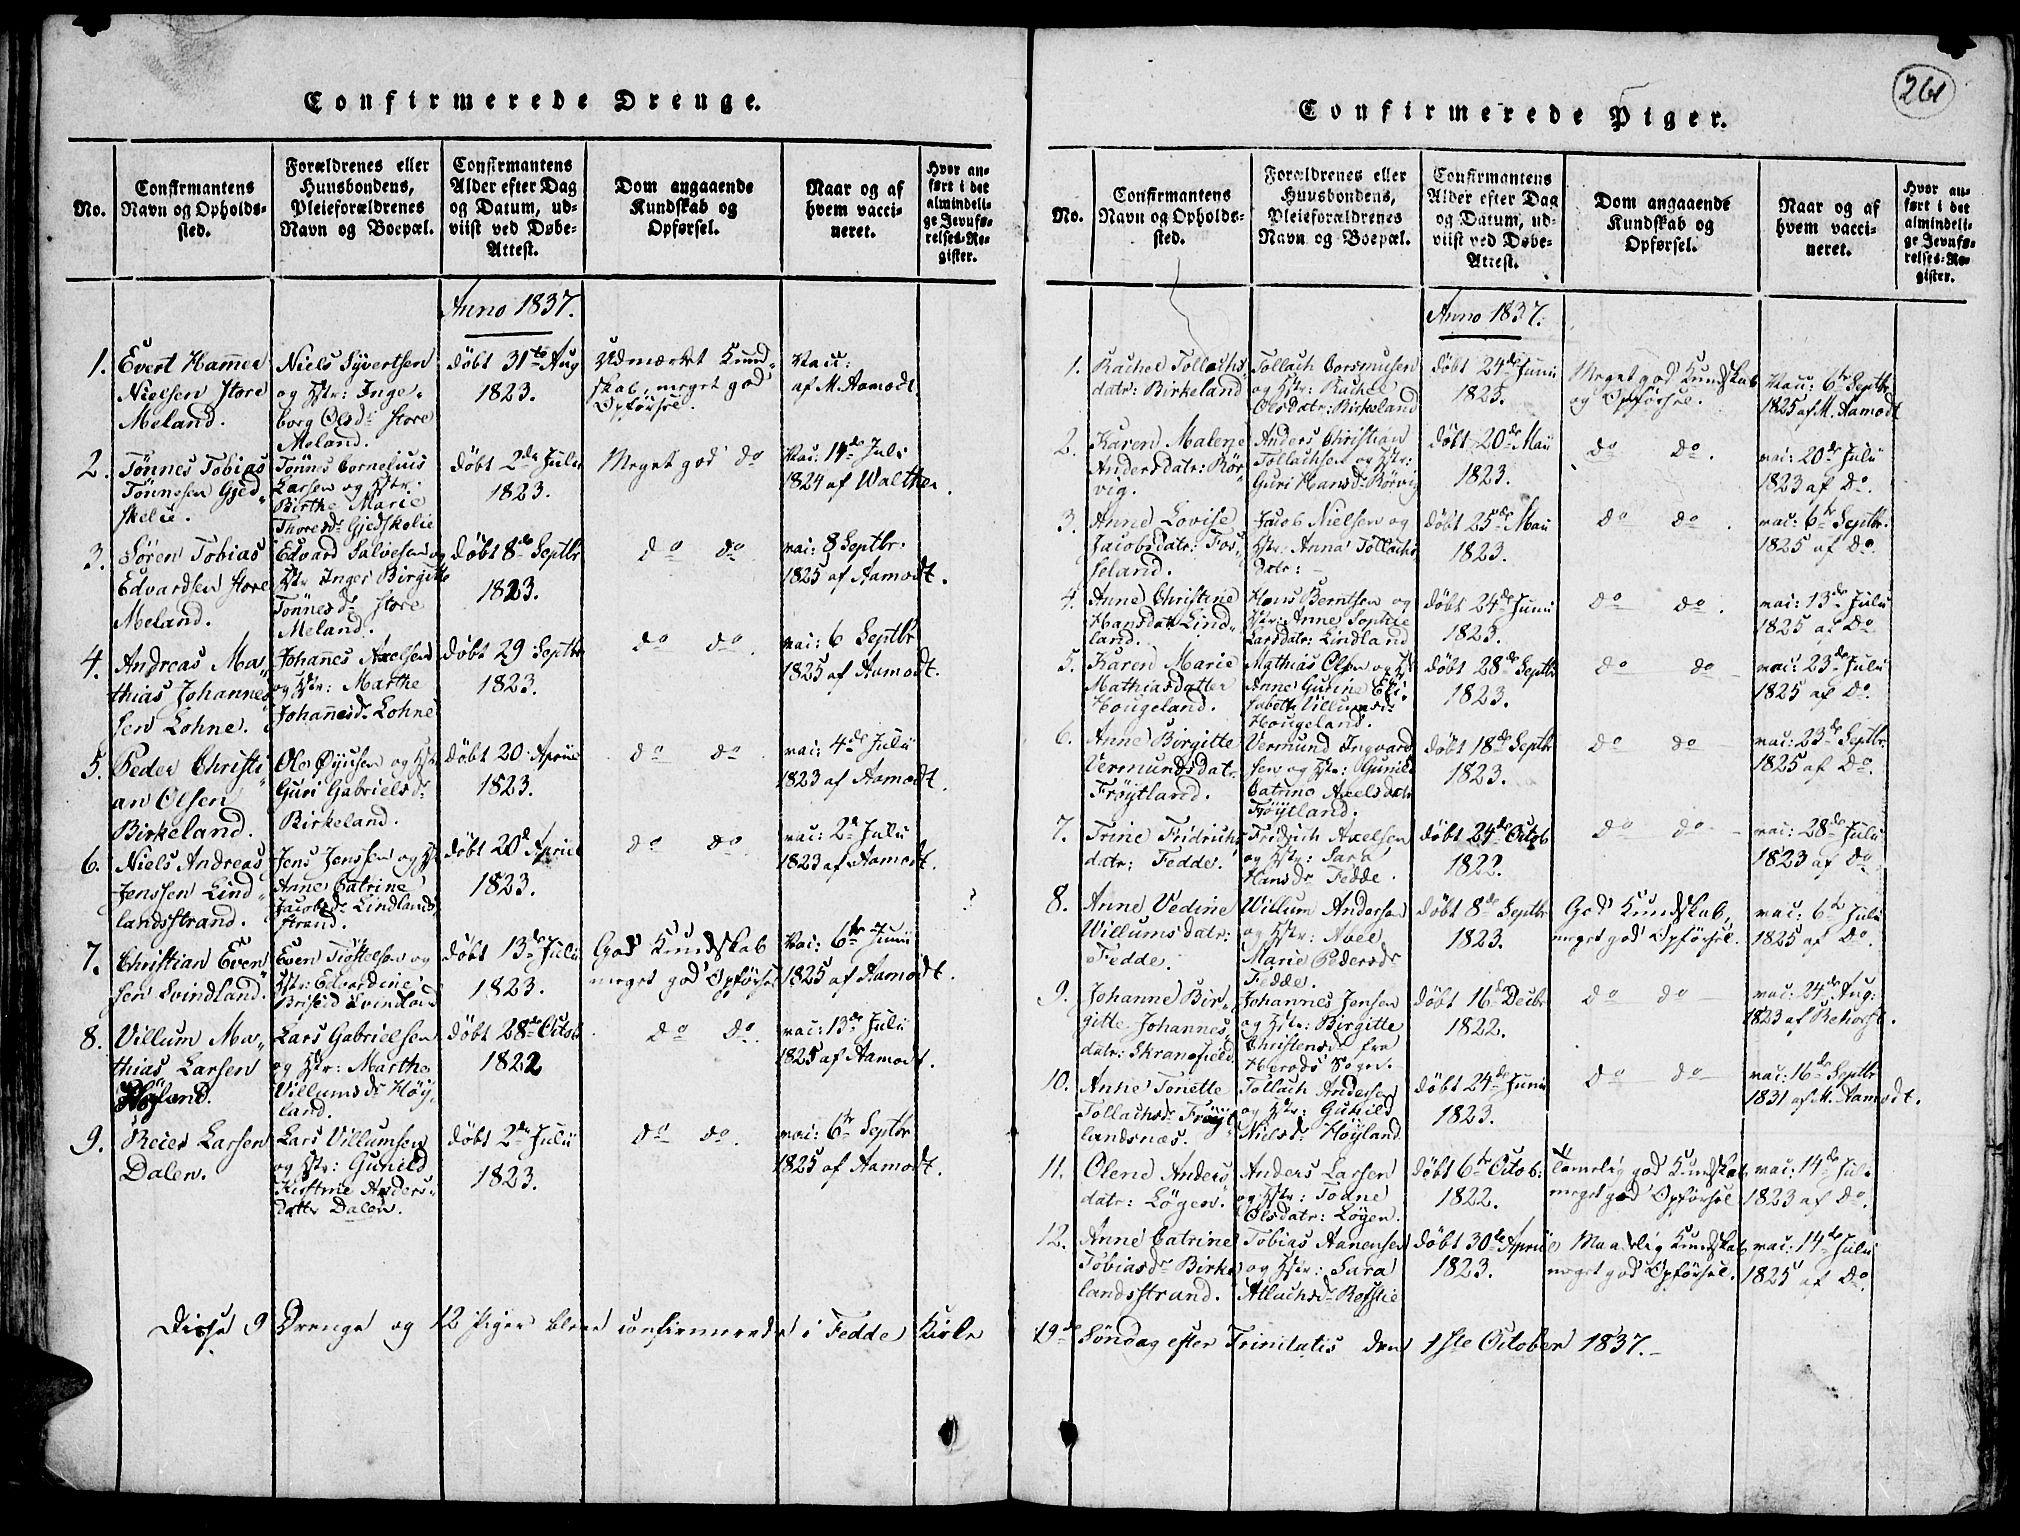 Confirmerede Drenge.
No.
Confirmantens
Navn og Opholds-
sted.
Forældrenes eller
Huusbondens,
Pleieforældrenes
Navn og Boepæl.
Confirmantens
Alder efter Dag
og Datum, ud-
viist ved Døbe-
Attest.
Dom angaaende
Kundskab og
Opførsel.
Naar og af
hvem vacci-
neret.
Hvor an-
ført i det
almindeli-
ge Jevnfø-
relses-Re-
gister.
Anno 1837.
1.
Evert Hammer
Nielsen Store
Meland.
Niels Syvertsen
og Hstr: Inge-
borg Olsd: Store
Meland.
døbt 31te Aug
1823.
Udmærket Kund-
skab, meget god
Opførsel.
Vac:
af M. Aamodt.
2.
Tønnes Tobias
Tønnesen Gjed-
skelie.
Tønnes Cornelius
Larsen og Hstr:
Birthe Marie
Thoresdr Gjedskelie
døbt 2de Julii
1823.
Meget god do
Vac: 14de Juli
1824 af Walther.
3.
Søren Tobias
Edvardsen Store
Meland.
Edvard Salvesen og
Hstr Inger Birgitte
Tønnesdr Store
Meland.
døbt 8de Septbr
1823.
do do
vac: 8 Septbr.
1825 af Aamodt.
4.
Andreas Ma-
thias Johannes-
sen Lohne.
Johannes Axelsen
og Hstr: Marthe
Johannesdr Lohne
døbt 29 Septbr
1823.
do do
vac: 6 Septbr
1825 af Aamodt.
5.
Peder Christi-
an Olsen
Birkeland.
Ole Øyusen og Hstr
Guri Gabrielsdr
Birkeland.
døbt 20 April
1823.
do do
vac: 4de Julii
1823 af Aamodt.
6.
Niels Andreas
Jenssen Lind-
landsstrand.
Jens Jenssen og Hstr
Anne Catrine
Jacobsdr Lindlands-
strand.
døbt 20de April
1823.
do do
vac: 2de Julii
1823 af Aamodt.
?
7.
Christian Even-
sen Svindland.
Even Tjøttelsen og
Hstr: Edvardine
Svindland
døbt 13de Julii
1823.
God Kundskab
meget god Opførsel
Vac: 6te Junii
1825 af Aamodt.
8.
Villum Ma-
thias Larsen
Høyland.
Lars Gabrielsen
og Hstr: Marthe
Villumsdr Høy-
land.
døbt 28de Octob
1822
do do
vac: 13de Julii
1825 af Aamodt.
9.
Reier Larsen
Dalen.
Lars Villumsen
og Hstr: Gunild
Kistine Anders-
datter Dalen.
døbt 2de Julii
1823.
do do
vac: 6te Septbr
1825 af Aamodt.
Disse 9 Drenge og 12 Piger bleve confirmerede i Fedde Kirke
261
Confirmerede Piger.
No.
Confirmantens
Navn og Opholds-
sted.
Forældrenes eller
Huusbondens,
Pleieforældrenes
Navn og Boepæl.
Confirmantens
Alder efter Dag
og Datum, ud-
viist ved Døbe-
Attest.
Dom angaaende
Kundskab og
Opførsel.
Naar og af
hvem vacci-
neret.
Hvor an-
ført i det
almindeli-
ge Jevnfø-
relses-Re-
gister.
Anno 1837.
1.
Rachel Tollachs-
datr: Birkeland
Tollach Corsmusen
og Hstr: Rachel
Olsdatr: Birkeland
døbt 24de Junii
1823.
Meget god Kundskab
og Opførsel.
Vac: 6te Septbr
1825 af M. Aamodt
2.
Karen Malene
Andersdatr: Rør-
vig.
Anders Christian
Tollachsen og Hstr:
Guri Hansdr Rørvig
døbt 20de Maii
1823.
do do.
vac: 20de Julii
1823 af do.
3.
Anne Lovise
Jacobsdatr: Fos-
seland.
Jacob Nielsen og
Hstr: Anna Tollachs
datr:
døbt 25de Maii
1823.
do do.
vac: 6te Septbr.
1825 af do.
4.
Anne Christine
Hansdatr Lind-
land.
Hans Berntsen og
Hstr: Anne Sophie
Larsdatr: Lindland
døbt 24de Junii
1823.
do do.
vac: 13de Julii
1825 af do
5.
Karen Marie
Mathiasdatter
Hougeland.
Mathias Olsen og Hstr
Anne Gurine Eli-
sabeth Villumsdr
Hougeland.
døbt 28de Septbr
1823.
do do
vac: 23de Julii
1825 af do.
6.
Anne Birgitte
Vermundsdatr
Frøytland.
Vermund Ingvard
sen og Hstr: Gunild
Catrine Axelsdatr
Frøytland.
døbt 18de Septbr
1823.
do do
vac: 23de Septbr.
1825 af do.
7.
Trine Fridrichs
datr: Fedde.
Fridrich Axelsen
og Hstr: Sara
Hansdr Fedde.
døbt 24de Octob
1822.
do do
vac: 28de Julii
1823 af do
8.
Anne Vedine
Willumsdatr:
Fedde.
Willum Andersen
og Hstr: Abel
Marie Pedersdr
Fedde.
døbt 8de Septbr
1823.
God Kundskab,
meget god Opførsel.
vac: 6te Julii
1825 af do.
9.
Johanne Bir-
gitte Johannes-
datr: Skranefield.
Johannes Jensen
og Hstr: Birgitte
Christensdr fra
Herods Sogn.
døbt 16de Decbr
1822.
do do
vac: 24de Aug:
1823 af Rehorst.
10.
Anne Tonette
Tollachsdr Frøyt-
landsnæs.
Tollach Andersen
og Hstr: Gunild
Nielsdr Høyland
døbt 24de Junii
1823.
do do
vac: 16de Septbr
1831 af M. Aamodt.
11.
Olene Anders-
datr: Løgen.
Anders Larsen
og Hstr: Tonne
Olsdatr: Løgen.
døbt 6te Octob:
1822.
Temelig god Kundskab
meget god Opførsel
vac: 14de Juli
1823 af do.
12.
Anne Catrine
Tobiasdr Birke-
landsstrand.
Tobias Aanensen
og Hstr: Sara
Atlachsdr Rofslie
døbt 30te April
1823.
Maadelig Kundskab
meget god Opførsel.
vac: 14de Julii
1825 af do.
19de Søndag efter Trinitatis den 1ste October 1837.